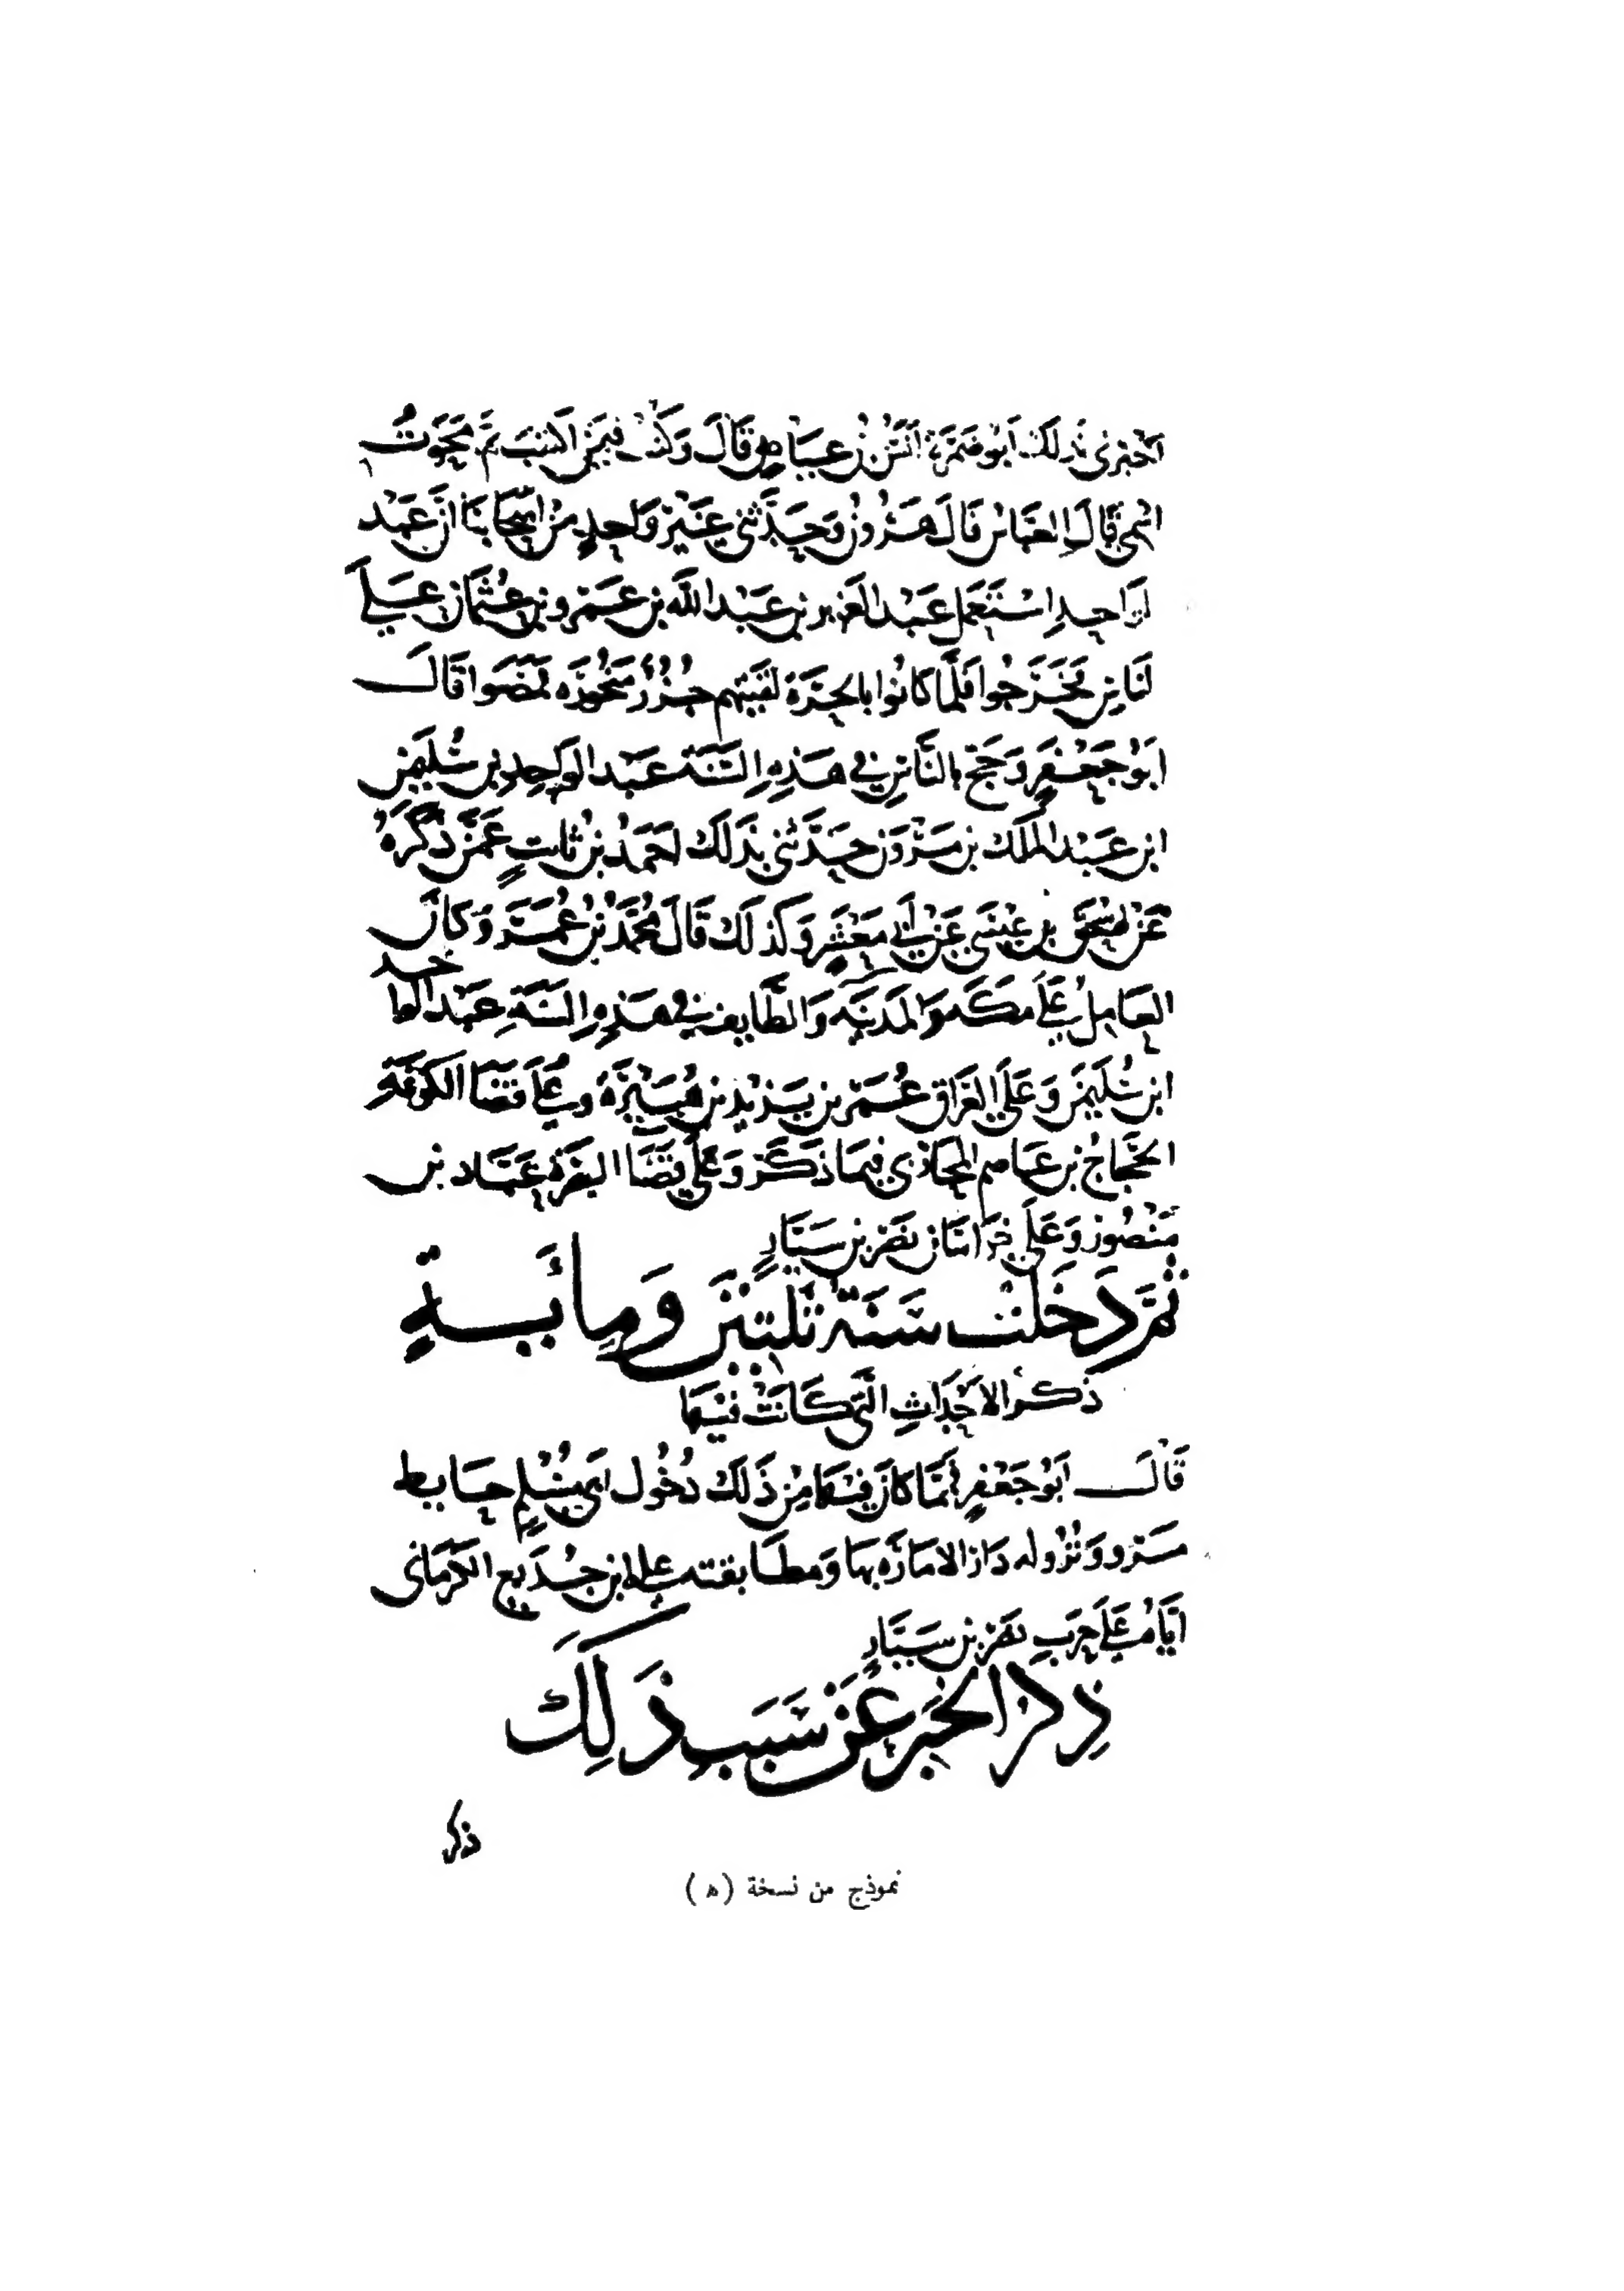 اخبرنى بذلك ابو ضمرة انس بن عياض قال وكنت فيمن اكتتب ثم محوت
اسمى قال العباس قال هرون وحدثنى غير واحد من اصحابنا ان عبد
الواحد استعمل عبد العزيز بن عبد الله بن عمرو بن عثمان على
الناس فخرجوا فلما كانوا بالحرة لقيتهم جزر منحورة فمضوا قال
ابو جعفر وحج بالناس فى هذه السنة عبد الواحد بن سليمن
ابن عبد الملك بن مرون حدثنى بذلك احمد بن ثابت عمن ذكره
عن اسحق بن عيسى عن ابى معشر وكذلك قال محمد بن عمر وكان
العامل على مكة والمدينة والطايف فى هذه السنة عبد الواحد
ابن سليمن وعلى العراق عمر بن يزيد بن هبيرة وعلى قضا الكوفة
الحجاج بن عاصم المحاربى فيما ذكر وعلى قضا البصرة عباد بن
منصور وعلى خراسان نصر بن سيار
ثم دخلت سنة ثلثين ومائة
ذكر الاحداث التى كانت فيها
قال ابو جعفر فمما كان فيها من ذلك دخول ابى مسلم حايط
مرو ونزوله دار الامارة بها ومطابقته على بن جديع الكرمانى
اياه على حرب نصر بن سيار
ذكر الخبر عن سبب ذلك
ذكر
نموذج من نسخة (ه)